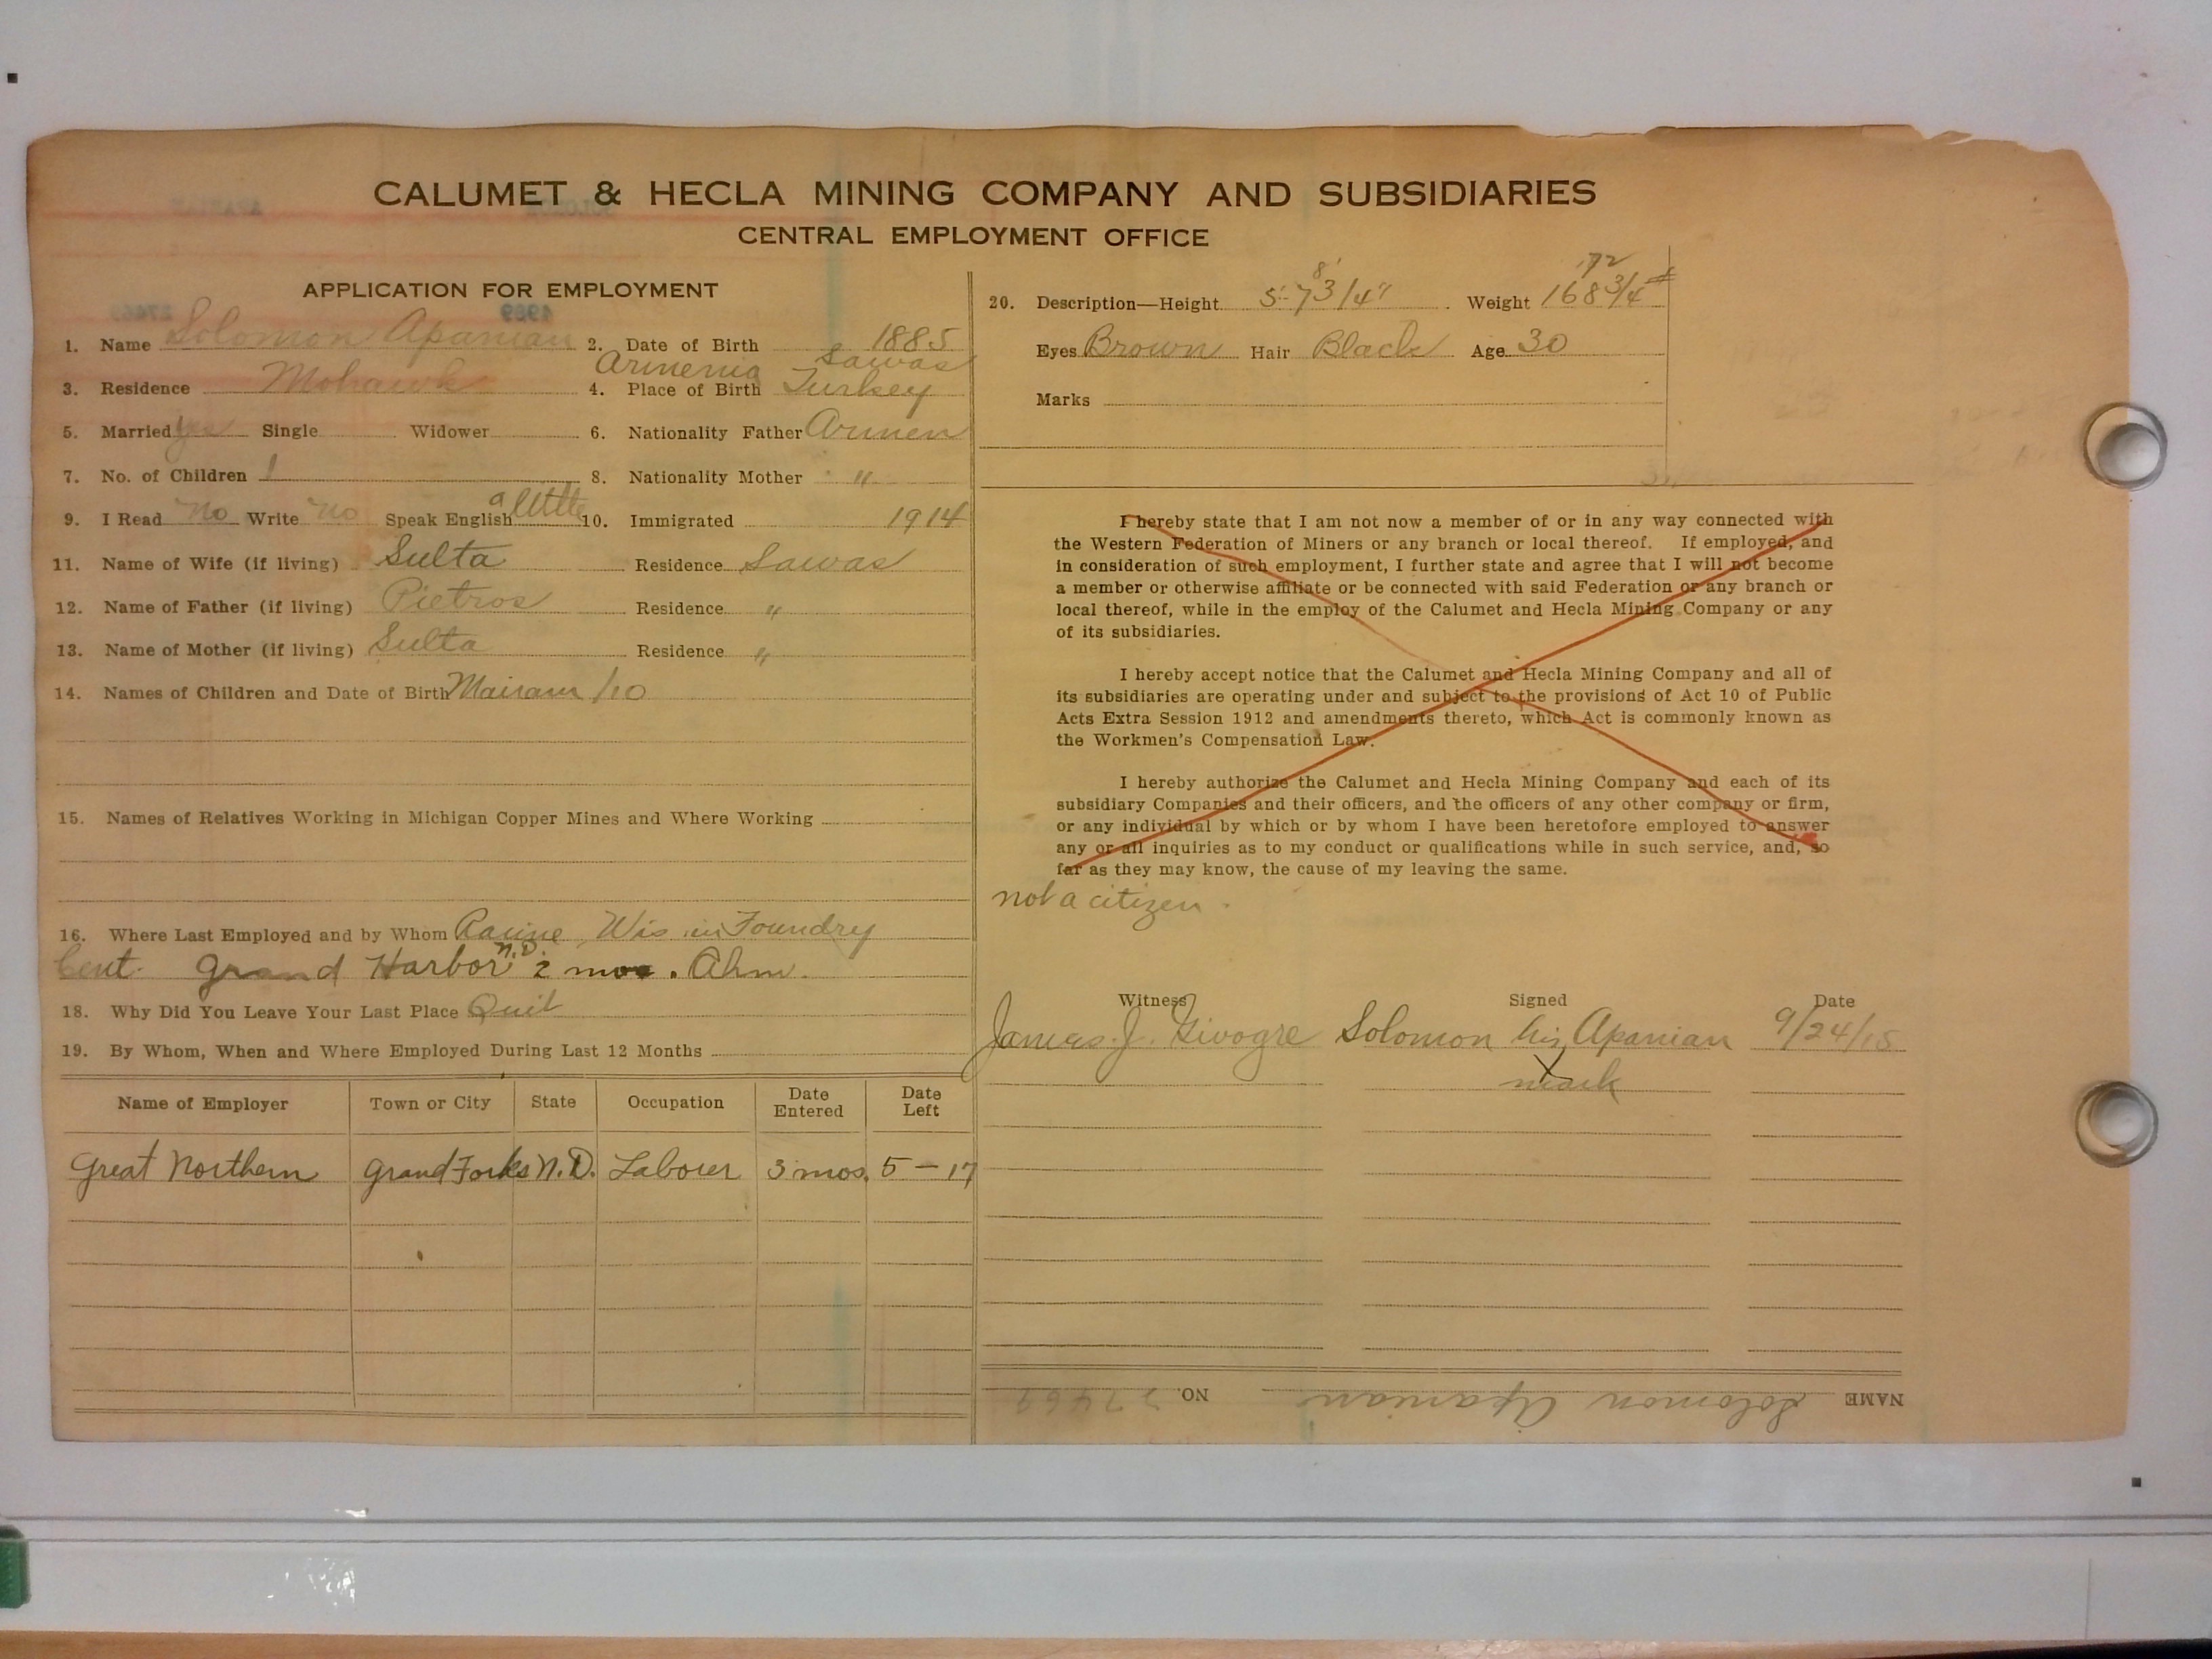 CALUMET & HECLA MINING COMPANY AND SUBSIDIARIES
CENTRAL EMPLOYMENT OFFICE
APPLICATION FOR EMPLOYMENT
1. Name Solomon Apanian 2. Date of Birth 1885
Armenia Sawas
3. Residence Mohawk 4. Place of Birth Turkey
5. Married yes Single Widower 6. Nationality Father Armen
7. No. of Children 1 8. Nationality Mother "
9. I Read No Write No Speak English a little 10. Immigrated 1914
11. Name of Wife (if living) Sulta Residence Sawas
12. Name of Father (if living) Pietros Residence "
13. Name of Mother (if living) Sulta Residence "
14. Names of Children and Date of Birth Mairam /10
15. Names of Relatives Working in Michigan Copper Mines and Where Working
16. Where Last Employed and by Whom Racine, Wis in Foundry
Grand Harbor N.D. 2 mos. Ahm.
18. Why Did You Leave Your Last Place Quit
19. By Whom, When and Where Employed During Last 12 Months
Name of Employer Town or City State Occupation Date Entered Date Left
Great Northern Grand Forks N.D. Laborer 3 mos. 5-17
8' 172
20. Description—Height 5'-7 3/4" Weight 168 3/4 #
Eyes Brown Hair Black Age 30
Marks
I hereby state that I am not now a member of or in any way connected with
the Western Federation of Miners or any branch or local thereof. If employed, and
in consideration of such employment, I further state and agree that I will not become
a member or otherwise affiliate or be connected with said Federation or any branch or
local thereof, while in the employ of the Calumet and Hecla Mining Company or any
of its subsidiaries.
I hereby accept notice that the Calumet and Hecla Mining Company and all of
its subsidiaries are operating under and subject to the provisions of Act 10 of Public
Acts Extra Session 1912 and amendments thereto, which Act is commonly known as
the Workmen's Compensation Law.
I hereby authorize the Calumet and Hecla Mining Company and each of its
subsidiary Companies and their officers, and the officers of any other company or firm,
or any individual by which or by whom I have been heretofore employed to answer
any or all inquiries as to my conduct or qualifications while in such service, and, so
far as they may know, the cause of my leaving the same.
not a citizen.
Witness Signed Date
James. J. Givogre Solomon his Apanian 9/24/15
X
mark
NAME Solomon Apanian NO. 27469